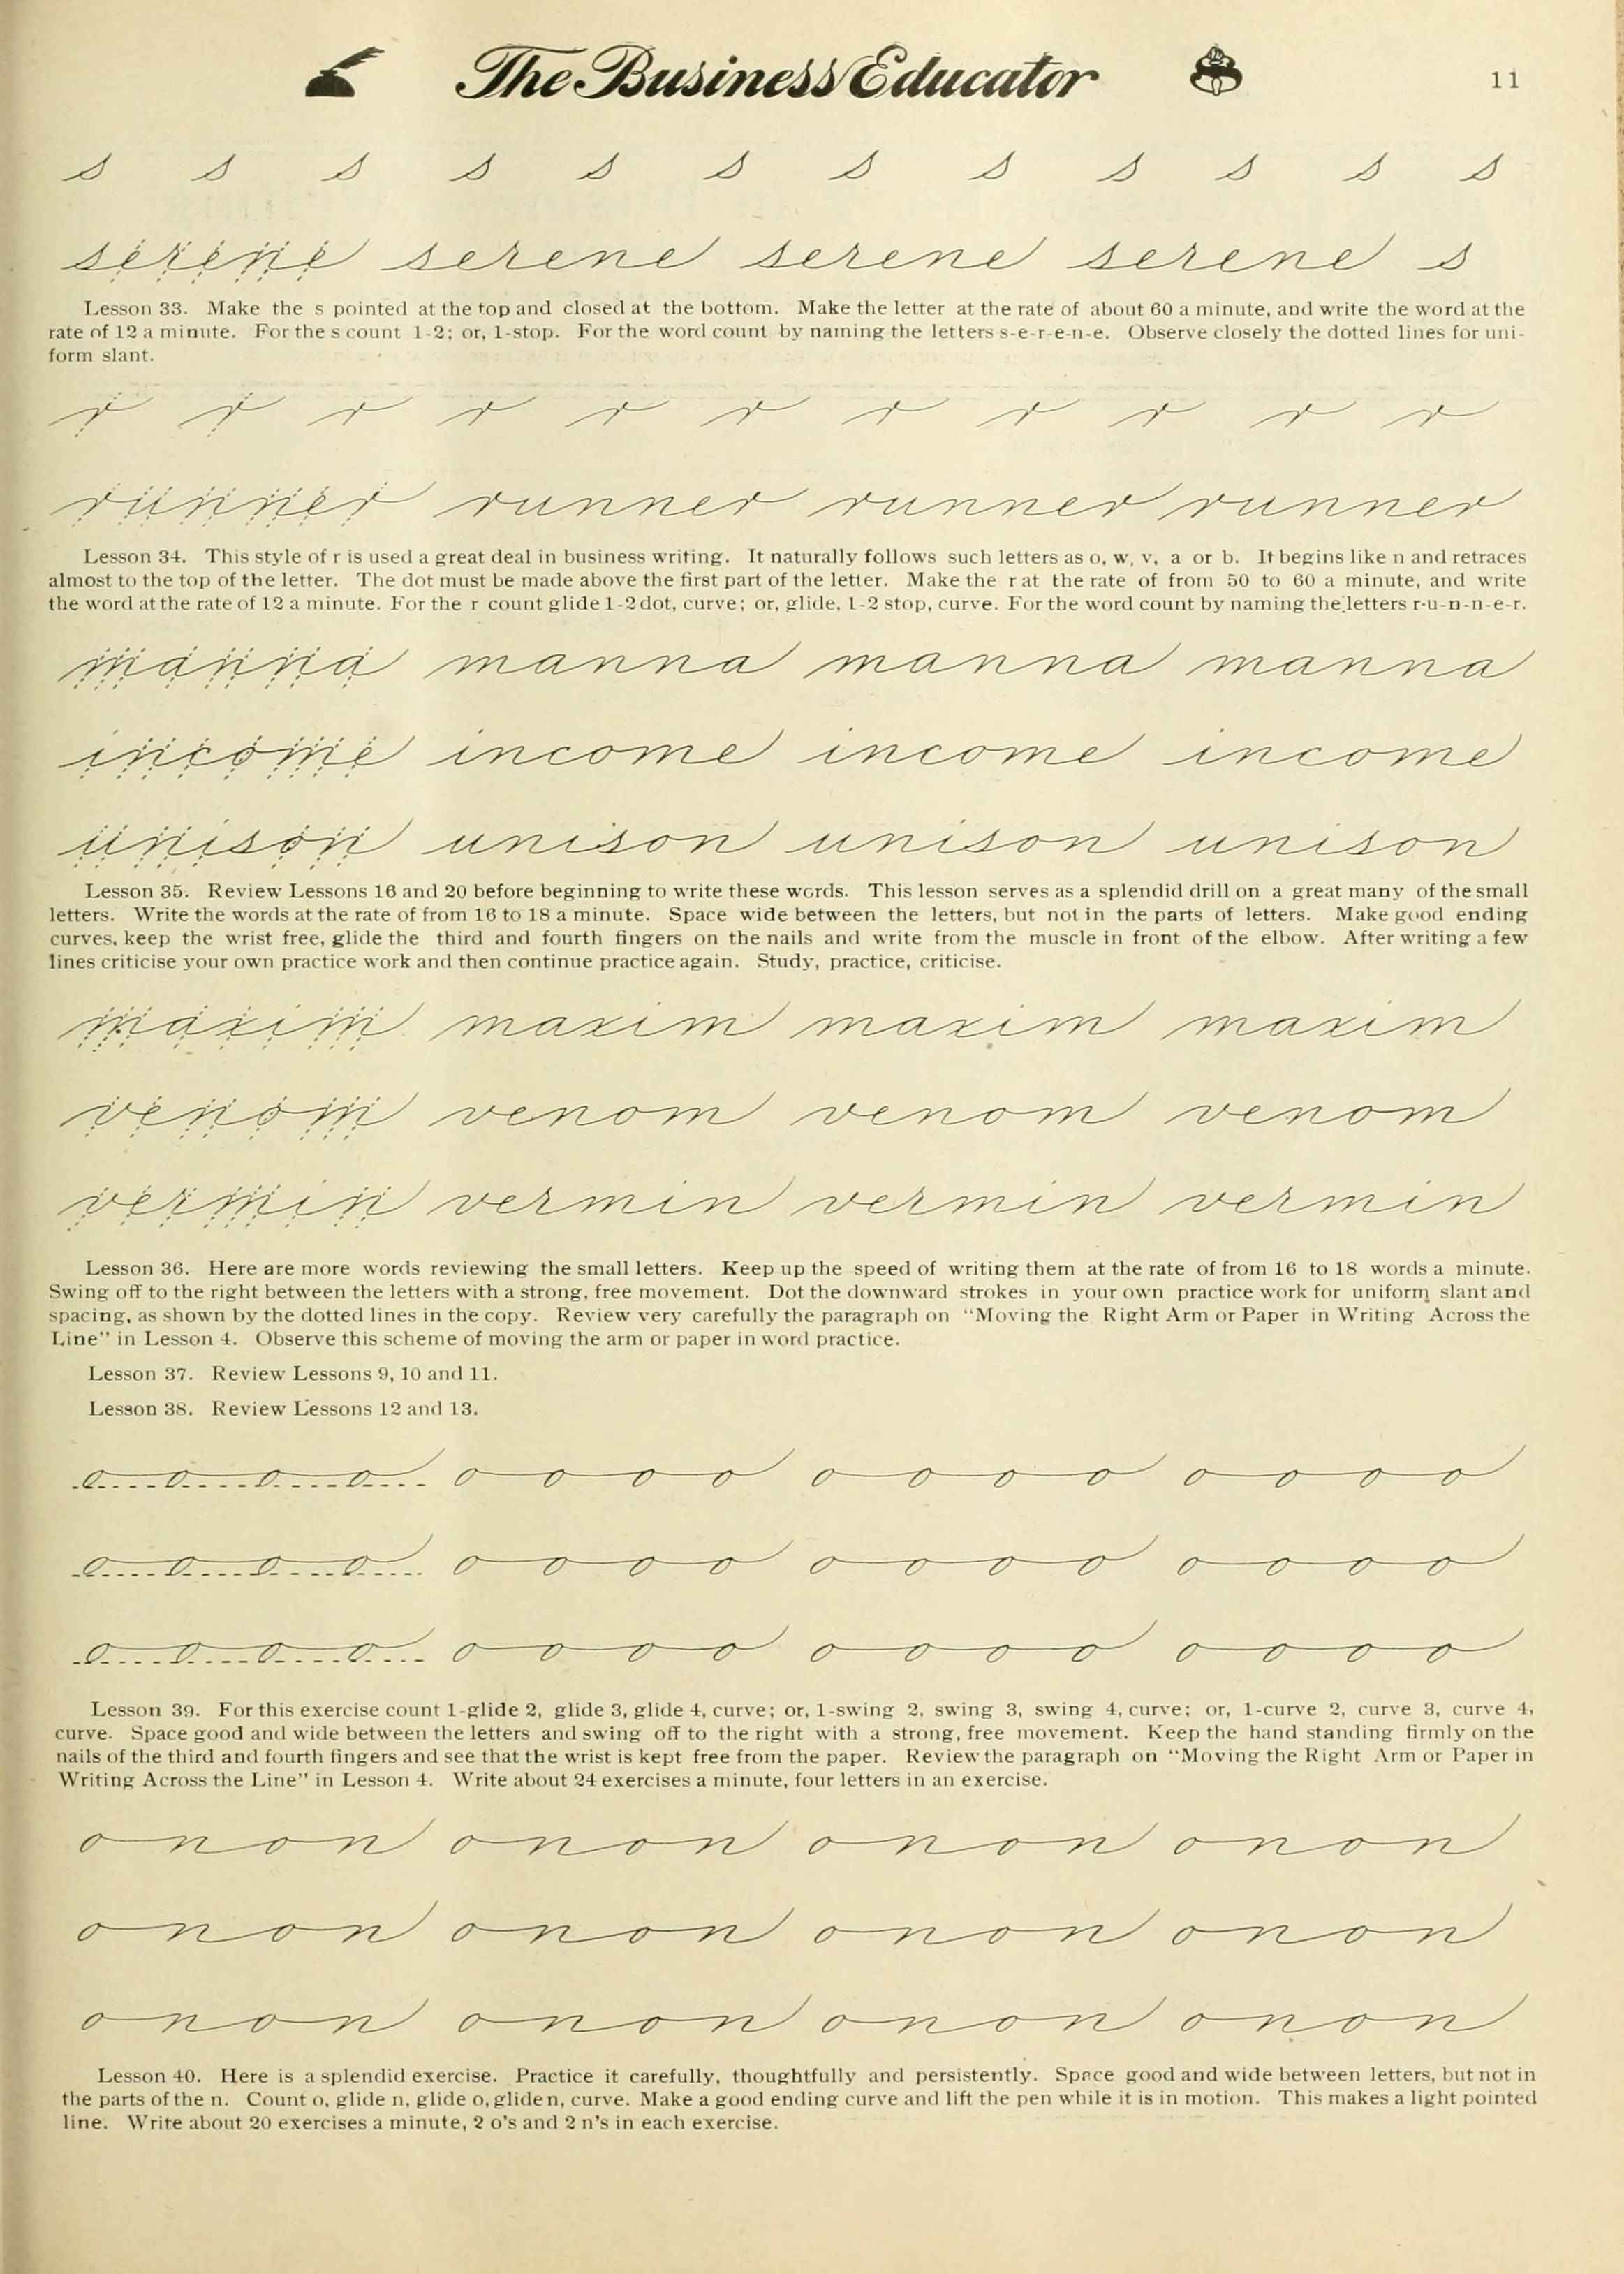 The Business Educator 11
s s s s s s s s s s s s
serene serene serene serene s
Lesson 33. Make the s pointed at the top and closed at the bottom. Make the letter at the rate of about 60 a minute, and write the word at the
rate of 12 a minute. For the s count 1-2; or, 1-stop. For the word count by naming the letters s-e-r-e-n-e. Observe closely the dotted lines for uni-
form slant.
r r r r r r r r r r r
runner runner runner runner
Lesson 34. This style of r is used a great deal in business writing. It naturally follows such letters as o, w, v, a or b. It begins like n and retraces
almost to the top of the letter. The dot must be made above the first part of the letter. Make the r at the rate of from 50 to 60 a minute, and write
the word at the rate of 12 a minute. For the r count glide 1-2 dot, curve; or, glide, 1-2 stop, curve. For the word count by naming the letters r-u-n-n-e-r.
manna manna manna manna
income income income income
unison unison unison unison
Lesson 35. Review Lessons 16 and 20 before beginning to write these words. This lesson serves as a splendid drill on a great many of the small
letters. Write the words at the rate of from 16 to 18 a minute. Space wide between the letters, but not in the parts of letters. Make good ending
curves, keep the wrist free, glide the third and fourth fingers on the nails and write from the muscle in front of the elbow. After writing a few
lines criticise your own practice work and then continue practice again. Study, practice, criticise.
maxim maxim maxim maxim
venom venom venom venom
vermin vermin vermin vermin
Lesson 36. Here are more words reviewing the small letters. Keep up the speed of writing them at the rate of from 16 to 18 words a minute.
Swing off to the right between the letters with a strong, free movement. Dot the downward strokes in your own practice work for uniform slant and
spacing, as shown by the dotted lines in the copy. Review very carefully the paragraph on "Moving the Right Arm or Paper in Writing Across the
Line" in Lesson 4. Observe this scheme of moving the arm or paper in word practice.
Lesson 37. Review Lessons 9, 10 and 11.
Lesson 38. Review Lessons 12 and 13.
o o o o o o o o o o o o o o o o
o o o o o o o o o o o o o o o o
o o o o o o o o o o o o o o o o
Lesson 39. For this exercise count 1-glide 2, glide 3, glide 4, curve; or, 1-swing 2, swing 3, swing 4, curve; or, 1-curve 2, curve 3, curve 4,
curve. Space good and wide between the letters and swing off to the right with a strong, free movement. Keep the hand standing firmly on the
nails of the third and fourth fingers and see that the wrist is kept free from the paper. Review the paragraph on "Moving the Right Arm or Paper in
Writing Across the Line" in Lesson 4. Write about 24 exercises a minute, four letters in an exercise.
o n o n o n o n o n o n o n o n
o n o n o n o n o n o n o n o n
o n o n o n o n o n o n o n o n
Lesson 40. Here is a splendid exercise. Practice it carefully, thoughtfully and persistently. Space good and wide between letters, but not in
the parts of the n. Count o, glide n, glide o, glide n, curve. Make a good ending curve and lift the pen while it is in motion. This makes a light pointed
line. Write about 20 exercises a minute, 2 o's and 2 n's in each exercise.